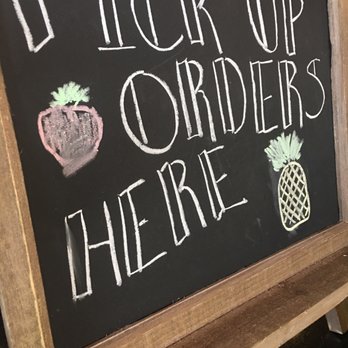 PICK UP
ORDERS
HERE